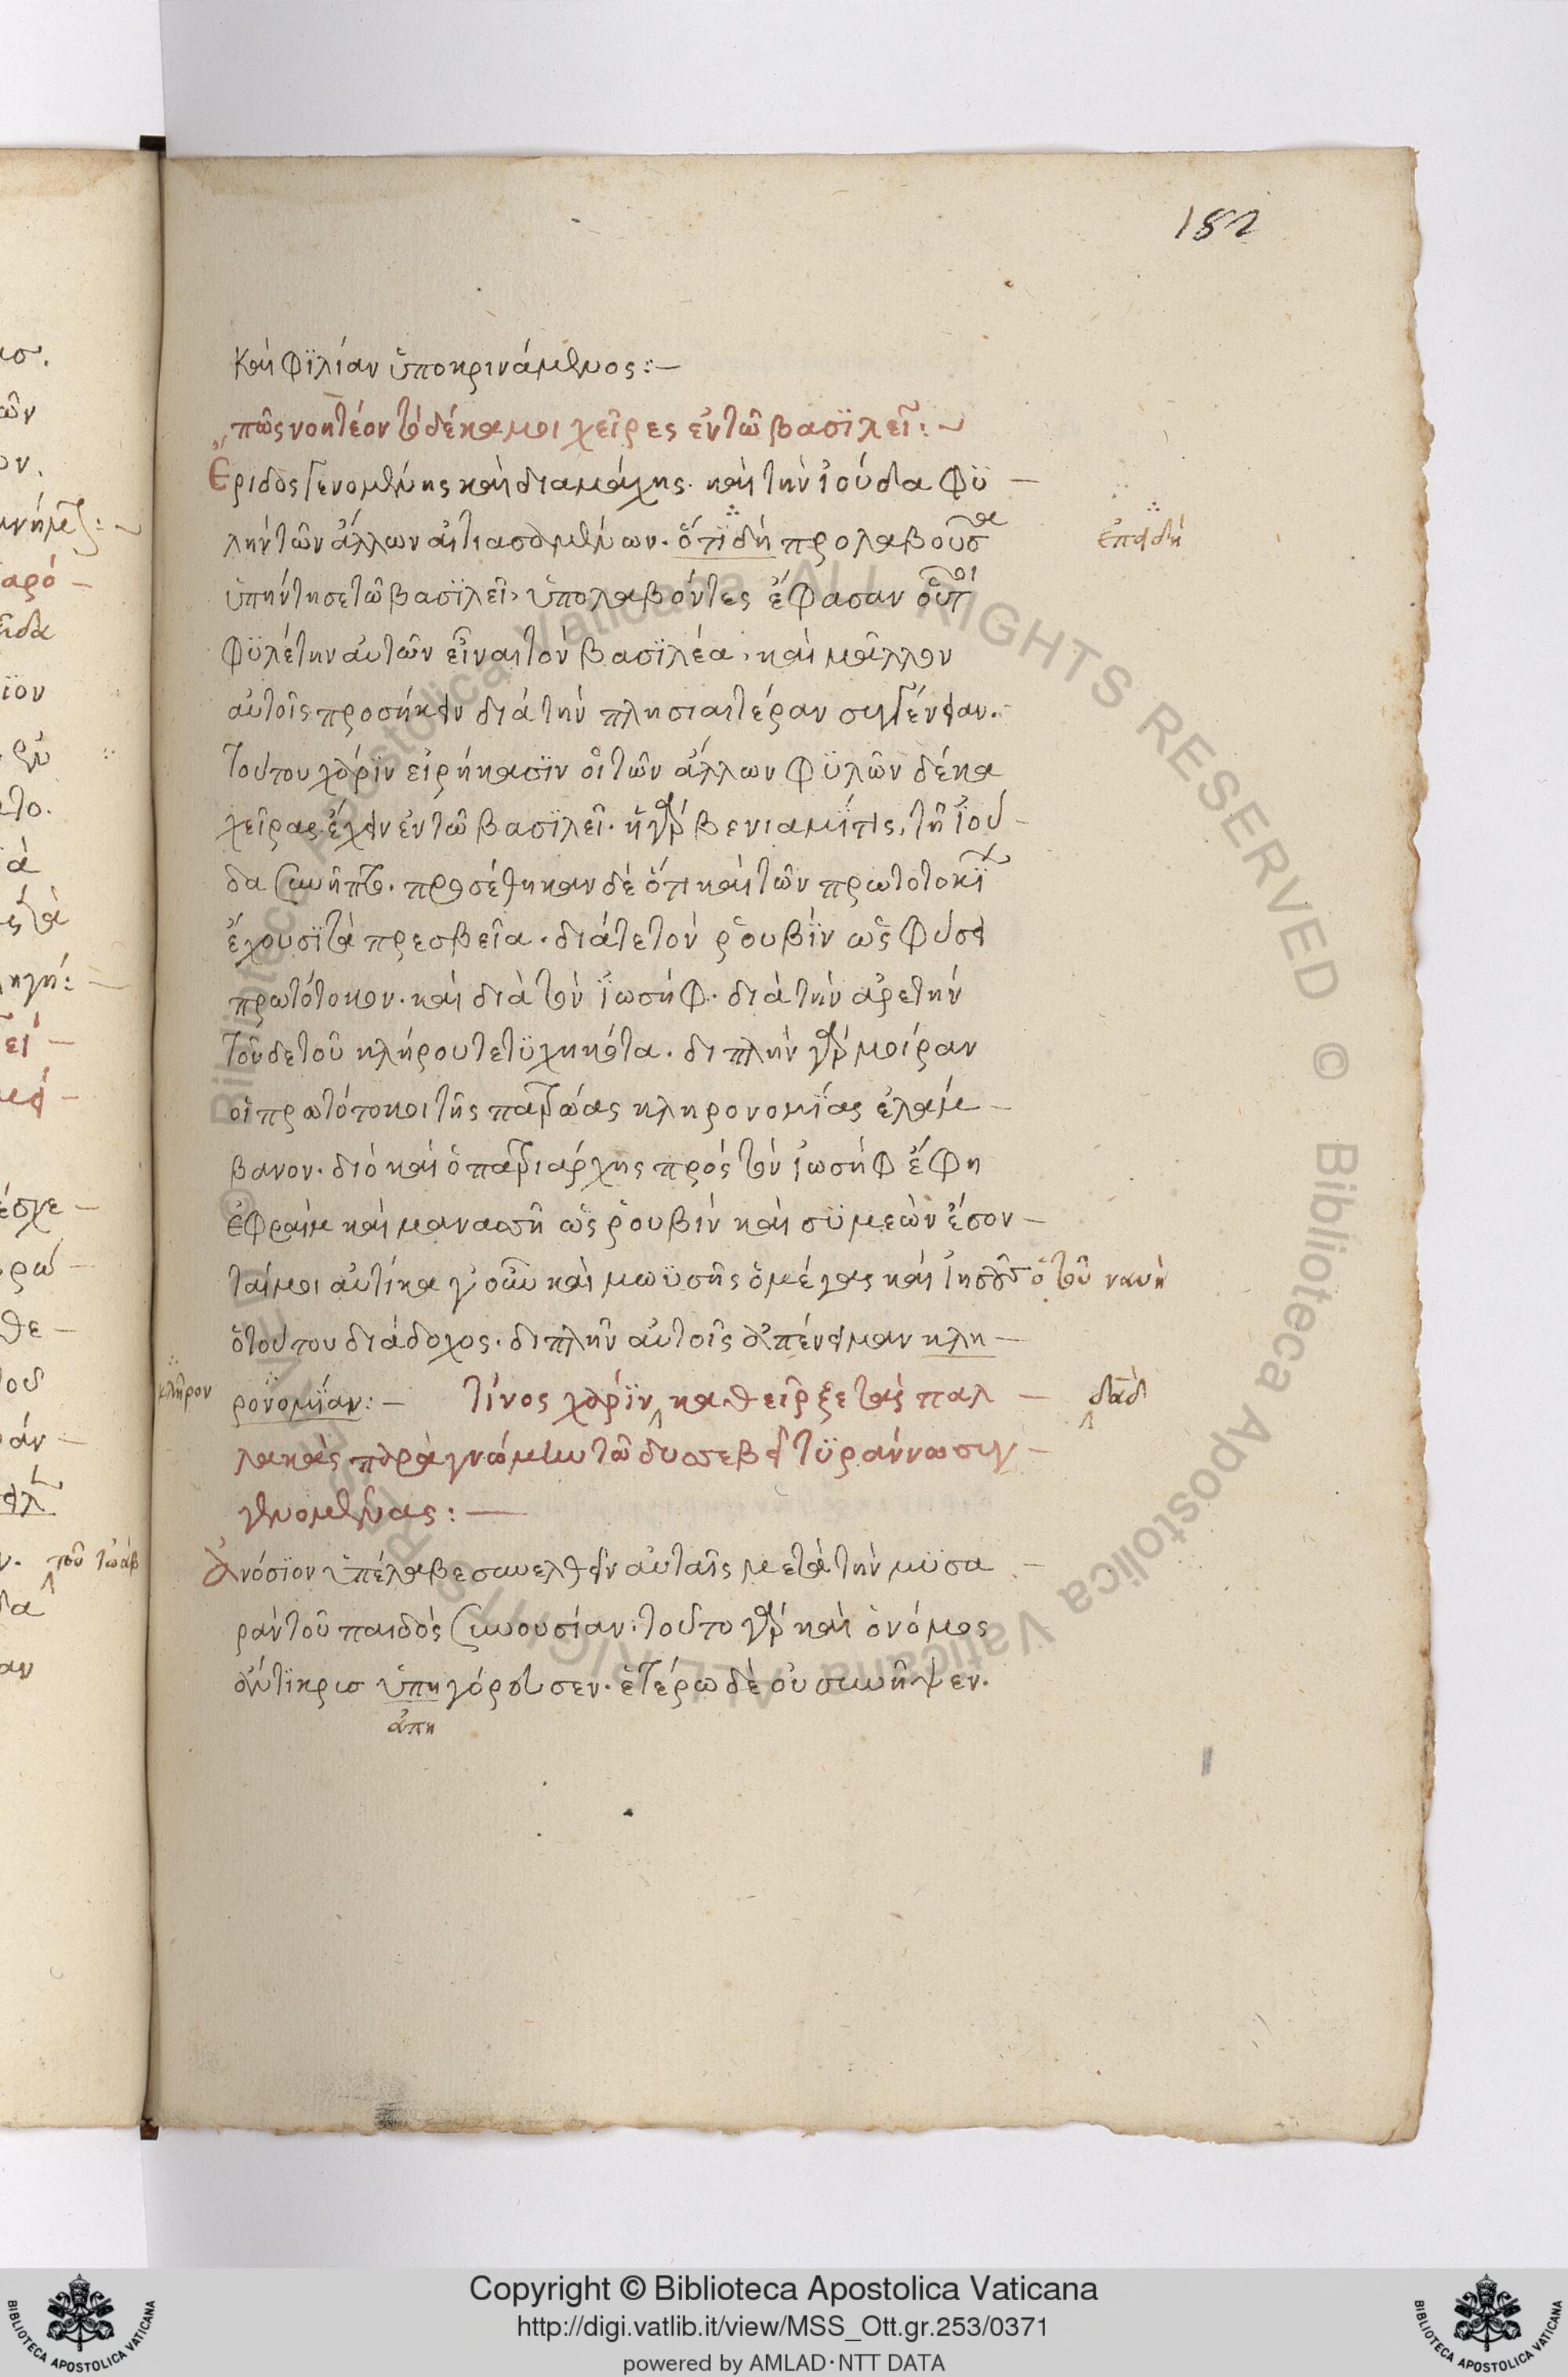 182
καὶ φϊλίαν ὑποκρινάμενος:—
πῶς νοητέον τὸ δέκα μοι χεῖρες ἐν τῶ βασϊλεῖ:~
Ἔριδος γενομένης καὶ διαμάχης. καὶ τὴν ἰούδα φϋ –
λὴν τῶν ἄλλων αἰτιασομένων. ὅτϊ δὴ προλαβοῦσα ἐπειδὴ
ὑπήντησε τῶ βασϊλεῖ, ὑπολαβόντες ἔφασαν οὗτοι
φϋλέτην αὐτῶν εἶναι τὸν βασϊλέα, καὶ μᾶλλον
αὐτοῖς προσήκειν διὰ τὴν πλησιαιτέραν συγγένειαν.
τούτου χάρϊν εἰρήκασϊν οἱ τῶν ἄλλων φϋλῶν δέκα
χεῖρας ἔχειν ἐν τῶ βασϊλεῖ. ἡ γὰρ βενιαμῖτις, τῆ ἰού –
δα συνῆπτο. προσέθηκαν δὲ ὅτι καὶ τῶν πρωτοτοκϊῶν
ἔχουσϊ τὰ πρεσβεῖα. διά τε τὸν ῥουβὶν ὡς φύσει
πρωτότοκον. καὶ διὰ τὸν ϊωσήφ. διὰ τὴν ἀρετὴν
τοῦδε τοῦ κλήρου τετϋχηκότα. διπλῆν γὰρ μοίραν
οἱ πρωτότοκοι τῆς πατρώας κληρονομϊας ἐλάμ –
βανον. διὸ καὶ ὁ πατριάρχης πρὸς τὸν ἰωσὴφ ἔφη
ἐφραὶμ καὶ μανασσῆ ὡς ῥουβὶν καὶ σϋμεὼν ἔσον –
ταί μοι αὐτίκα γ' οὖν καὶ μωϋσῆς ὁ μέγας καὶ ἰησοῦς ὁ τοῦ ναυῆ
ὁ τούτου διάδοχος. διπλῆν αὐτοῖς ἀπένειμαν κλη –
κλῆρον ρονομϊαν:– τίνος χάρϊν καθεῖρξε τὰς παλ – δαδ
λακὰς παρὰ γνώμην τῶ δυσσεβεῖ τϋράννω συγ –
γενομένας:—
Ἀνόσϊον ὑπέλαβε συνελθεῖν αὐταῖς μετὰ τὴν μϋσα –
ρὰν τοῦ παιδὸς συνουσίαν. τοῦτο γὰρ καὶ ὁ νόμος
ἄντϊκρισ ὑπηγόρευσεν. ἑτέρω δὲ οὐ συνῆψεν.
ἀπη
Copyright © Biblioteca Apostolica Vaticana
http://digi.vatlib.it/view/MSS_Ott.gr.253/0371
powered by AMLAD·NTT DATA